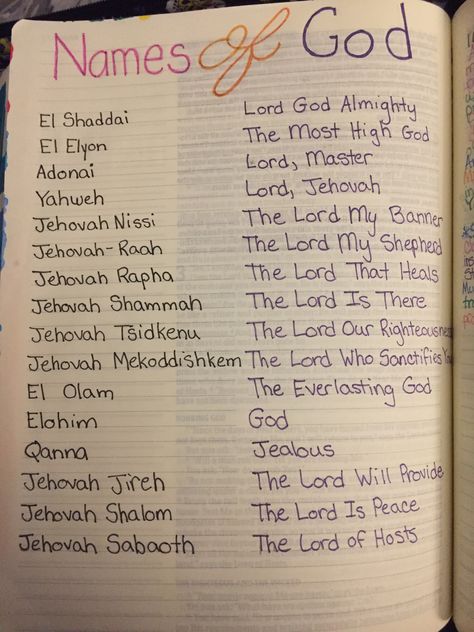 Names of God
El Shaddai Lord God Almighty
El Elyon The Most High God
Adonai Lord, Master
Yahweh Lord, Jehovah
Jehovah Nissi The Lord My Banner
Jehovah-Raah The Lord My Shepherd
Jehovah Rapha The Lord That Heals
Jehovah Shammah The Lord Is There
Jehovah Tsidkenu The Lord Our Righteousness
Jehovah Mekoddishkem The Lord Who Sanctifies You
El Olam The Everlasting God
Elohim God
Qanna Jealous
Jehovah Jireh The Lord Will Provide
Jehovah Shalom The Lord Is Peace
Jehovah Sabaoth The Lord of Hosts